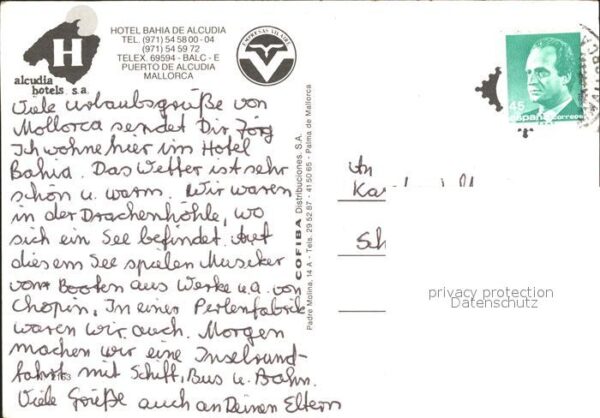 HOTEL BAHIA DE ALCUDIA
TEL. (971) 54 58 00 - 04
(971) 54 59 72
TELEX. 69594 - BALC - E
PUERTO DE ALCUDIA
MALLORCA
H
alcudia
hotels s.a.
Viele Urlaubsgrüße von
Mollorca sendet Dir Jörg
Ich wohne hier im Hotel
Bahia. Das Wetter ist sehr
schön u. warm. Wir waren
in der Drachenhöhle, wo
sich ein See befindet. Auf
diesem See spielen Musiker
von Booten aus Werke u.a. von
Chopin. In einer Perlenfabrik
waren wir auch. Morgen
machen wir eine Inselrund-
fahrt mit Schiff, Bus u. Bahn.
Viele Grüße auch an Deinen Eltern
COFIBA Distribuciones, S.A.
Padre Molina, 14 A - Tels. 29 52 87 - 41 50 65 - Palma de Mallorca
45
españa correos
An
Ka
Sch
privacy protection
Datenschutz